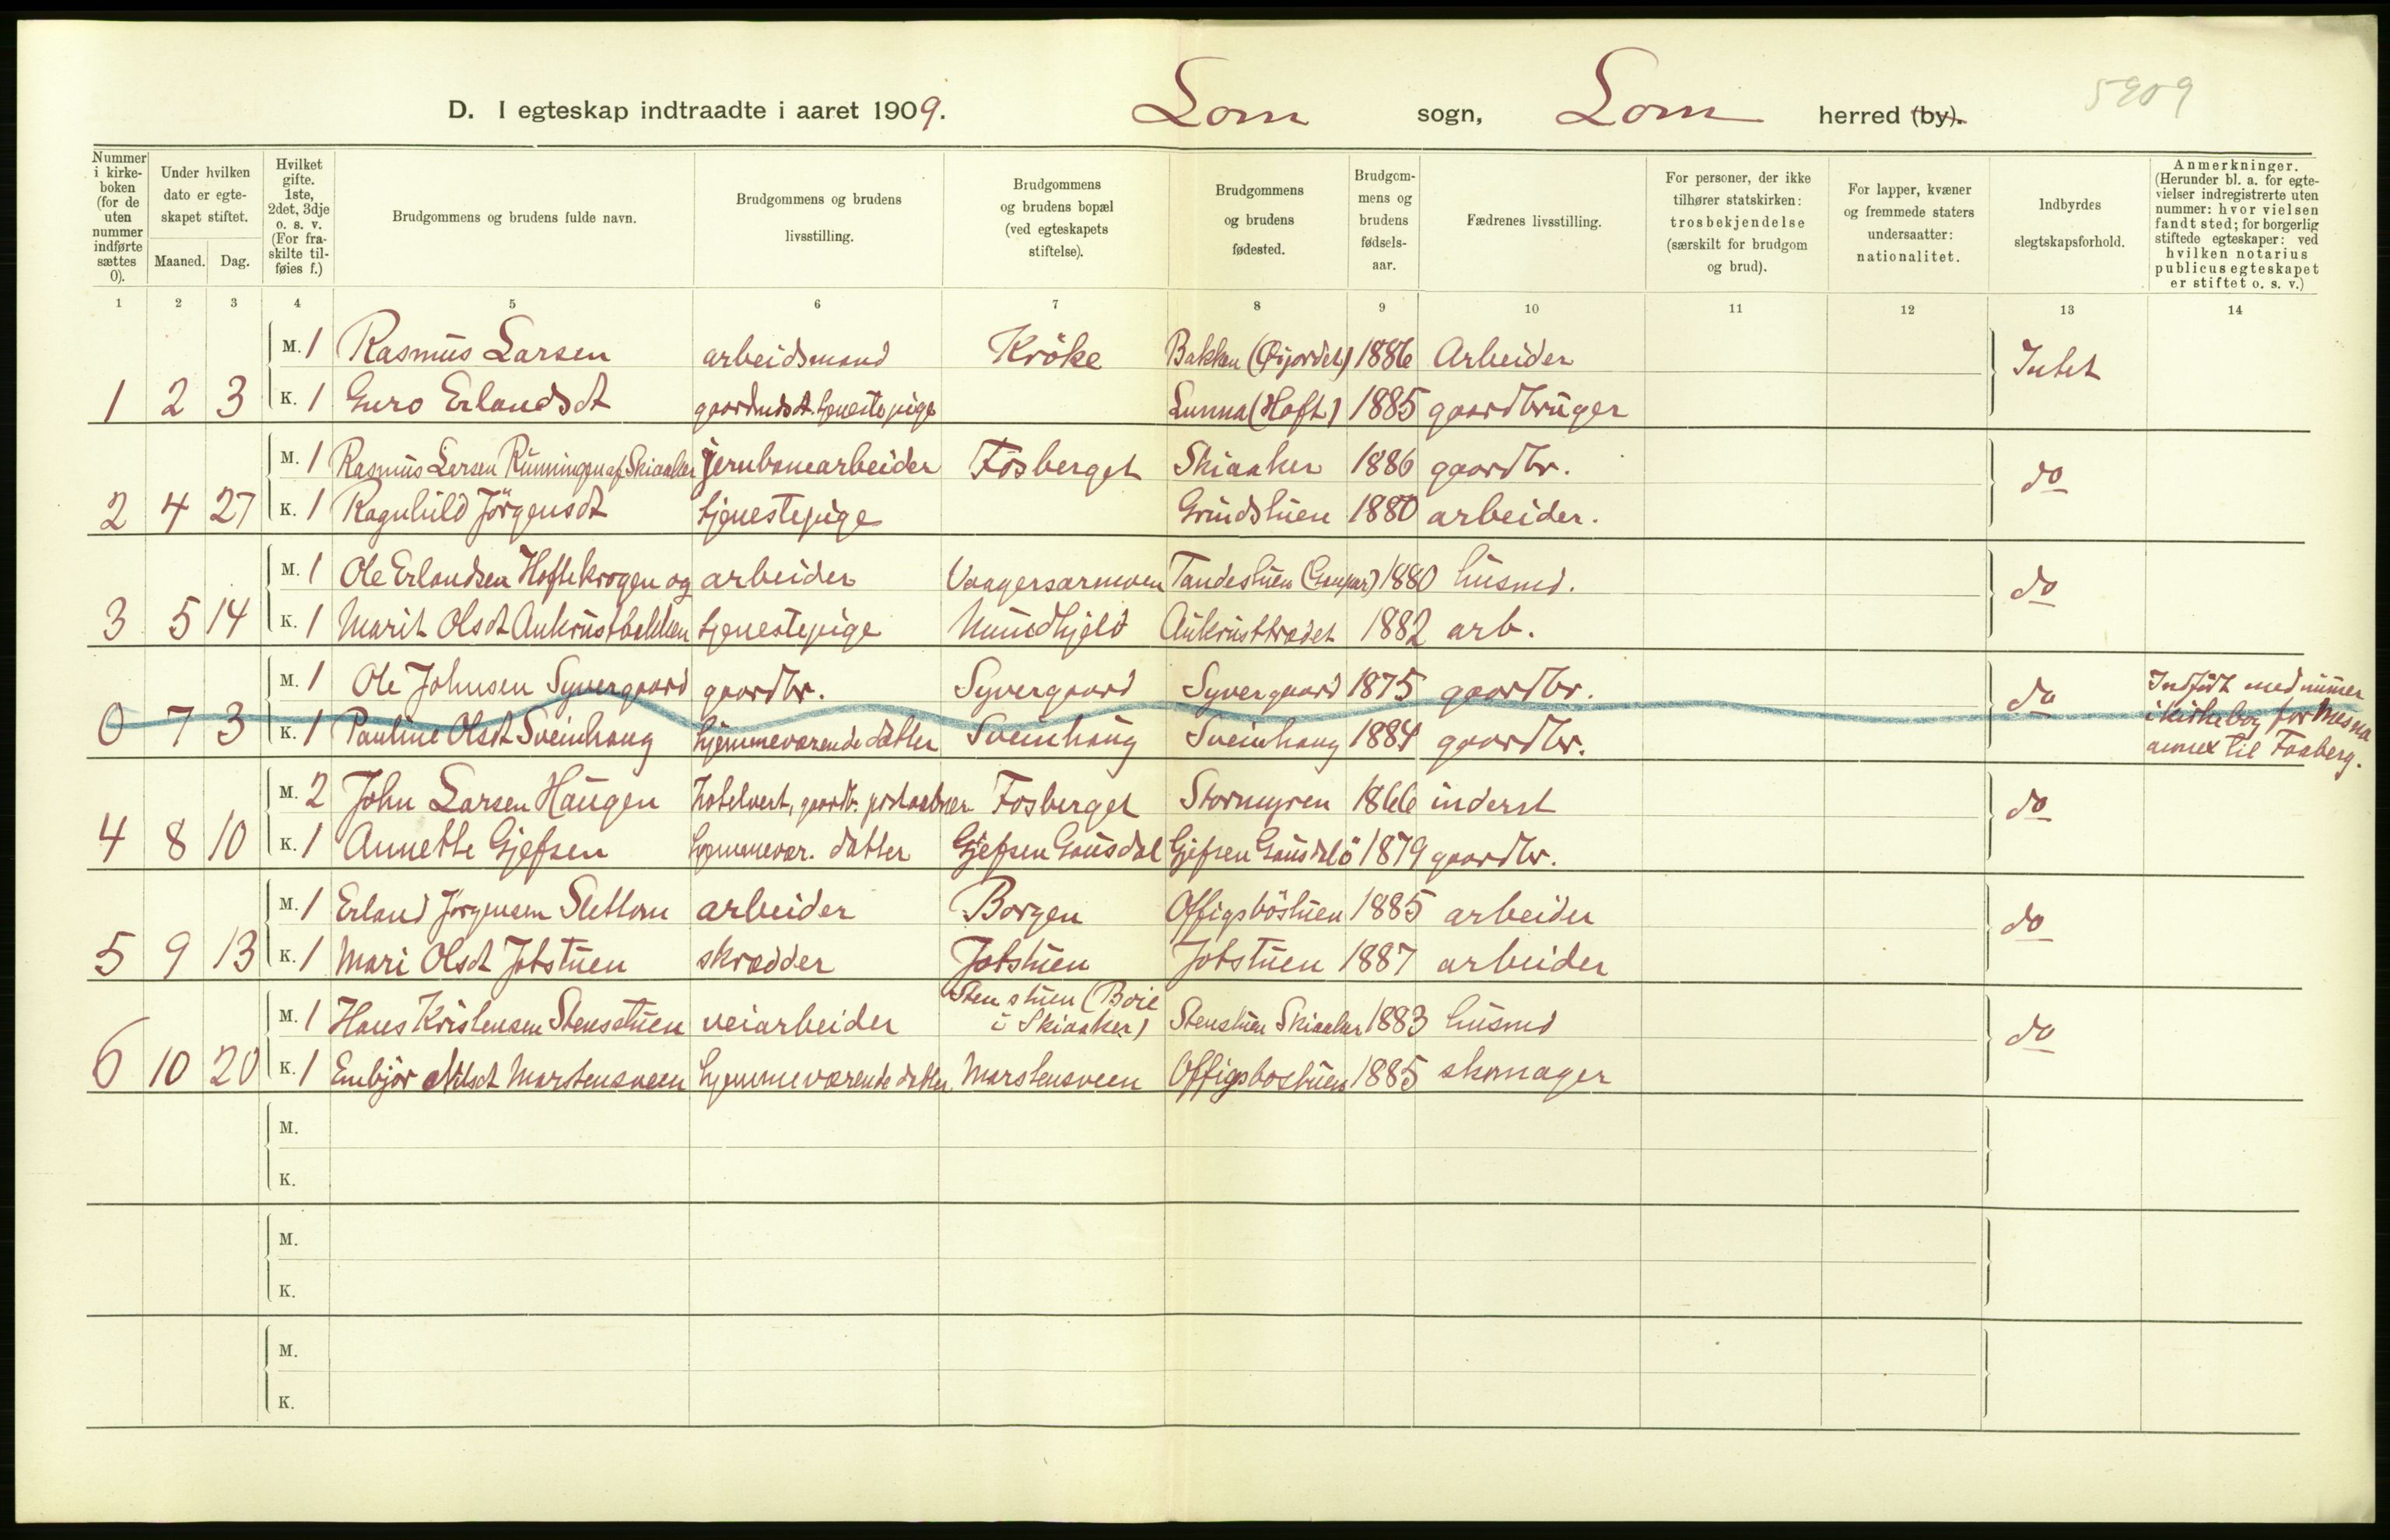 D. I egteskap indtraadte i aaret 1909. Lom sogn, Lom herred (by). 5909
Nummer i kirkeboken (for de uten nummer indførte sættes 0).
Under hvilken dato er egteskapet stiftet.
Maaned. Dag.
Hvilket gifte. 1ste, 2det, 3dje o. s. v. (For fraskilte tilføies f.)
Brudgommens og brudens fulde navn.
Brudgommens og brudens livsstilling.
Brudgommens og brudens bopæl (ved egteskapets stiftelse).
Brudgommens og brudens fødested.
Brudgommens og brudens fødselsaar.
Fædrenes livsstilling.
For personer, der ikke tilhører statskirken: trosbekjendelse (særskilt for brudgom og brud).
For lapper, kvæner og fremmede staters undersaatter: nationalitet.
Indbyrdes slegtskapsforhold.
Anmerkninger. (Herunder bl. a. for egtevielser indregistrerte uten nummer: hvor vielsen fandt sted; for borgerlig stiftede egteskaper: ved hvilken notarius publicus egteskapet er stiftet o. s. v.)
1 2 3 4 5 6 7 8 9 10 11 12 13 14
M. 1 Rasmus Larsen arbeidsmand Kröke Bakken 1886 Arbeider Intet
1 2 3 K. 1 Guro Erlandsdt tjenestepige Lunna (Hoft) 1885 gaardbruger
M. 1 Rasmus Larsen Rünningen af Skiaaker jernbanearbeider Fosberget Skiaaker 1886 gaardbr. do
2 4 27 K. 1 Ragnhild Jörgensdt tjenestepige Grindstuen 1880 arbeider.
M. 1 Ole Erlandsen Hoftekrogen og arbeider Vaagersarmoen Tandestuen 1880 husmd. do
3 5 14 K. 1 Marit Olsdt Aukrustbakken tjenestepige Aukrusttrædet 1882 arb.
M. 1 Ole Johnsen Syvergaard gaardbr. Syvergaard Syvergaard 1875 gaardbr. do Indført med numer
0 7 3 K. 1 Pauline Olsdt Sveinhaug hjemmeværende datter Sveinhaug Sveinhaug 1884 gaardbr. i kirkebog for Mesna
annex til Faaberg.
M. 2 John Larsen Haugen Hotelvert, gaardbr. postaabner Fosberget Stormyren 1866 inderst do
4 8 10 K. 1 Annette Gjefsen hjemmevær. datter Gjefsen Gausdal Gjefsen 1879 gaardbr.
M. 1 Erland Jörgensen Slettom arbeider Borgen Offigsböstuen 1885 arbeider do
5 9 13 K. 1 Mari Olsdt Jotstuen skrædder Jotstuen Jotstuen 1887 arbeider
M. 1 Hans Kristensen Stenstuen veiarbeider Stenstuen (Boie i Skiaaker) Stenstuen Skiaaker 1883 husmd do
6 10 20 K. 1 Embjör Nilsdt Marstensveen hjemmeværende datter Marstensveen Offigsbostuen 1885 skomager
M.
K.
M.
K.
M.
K.